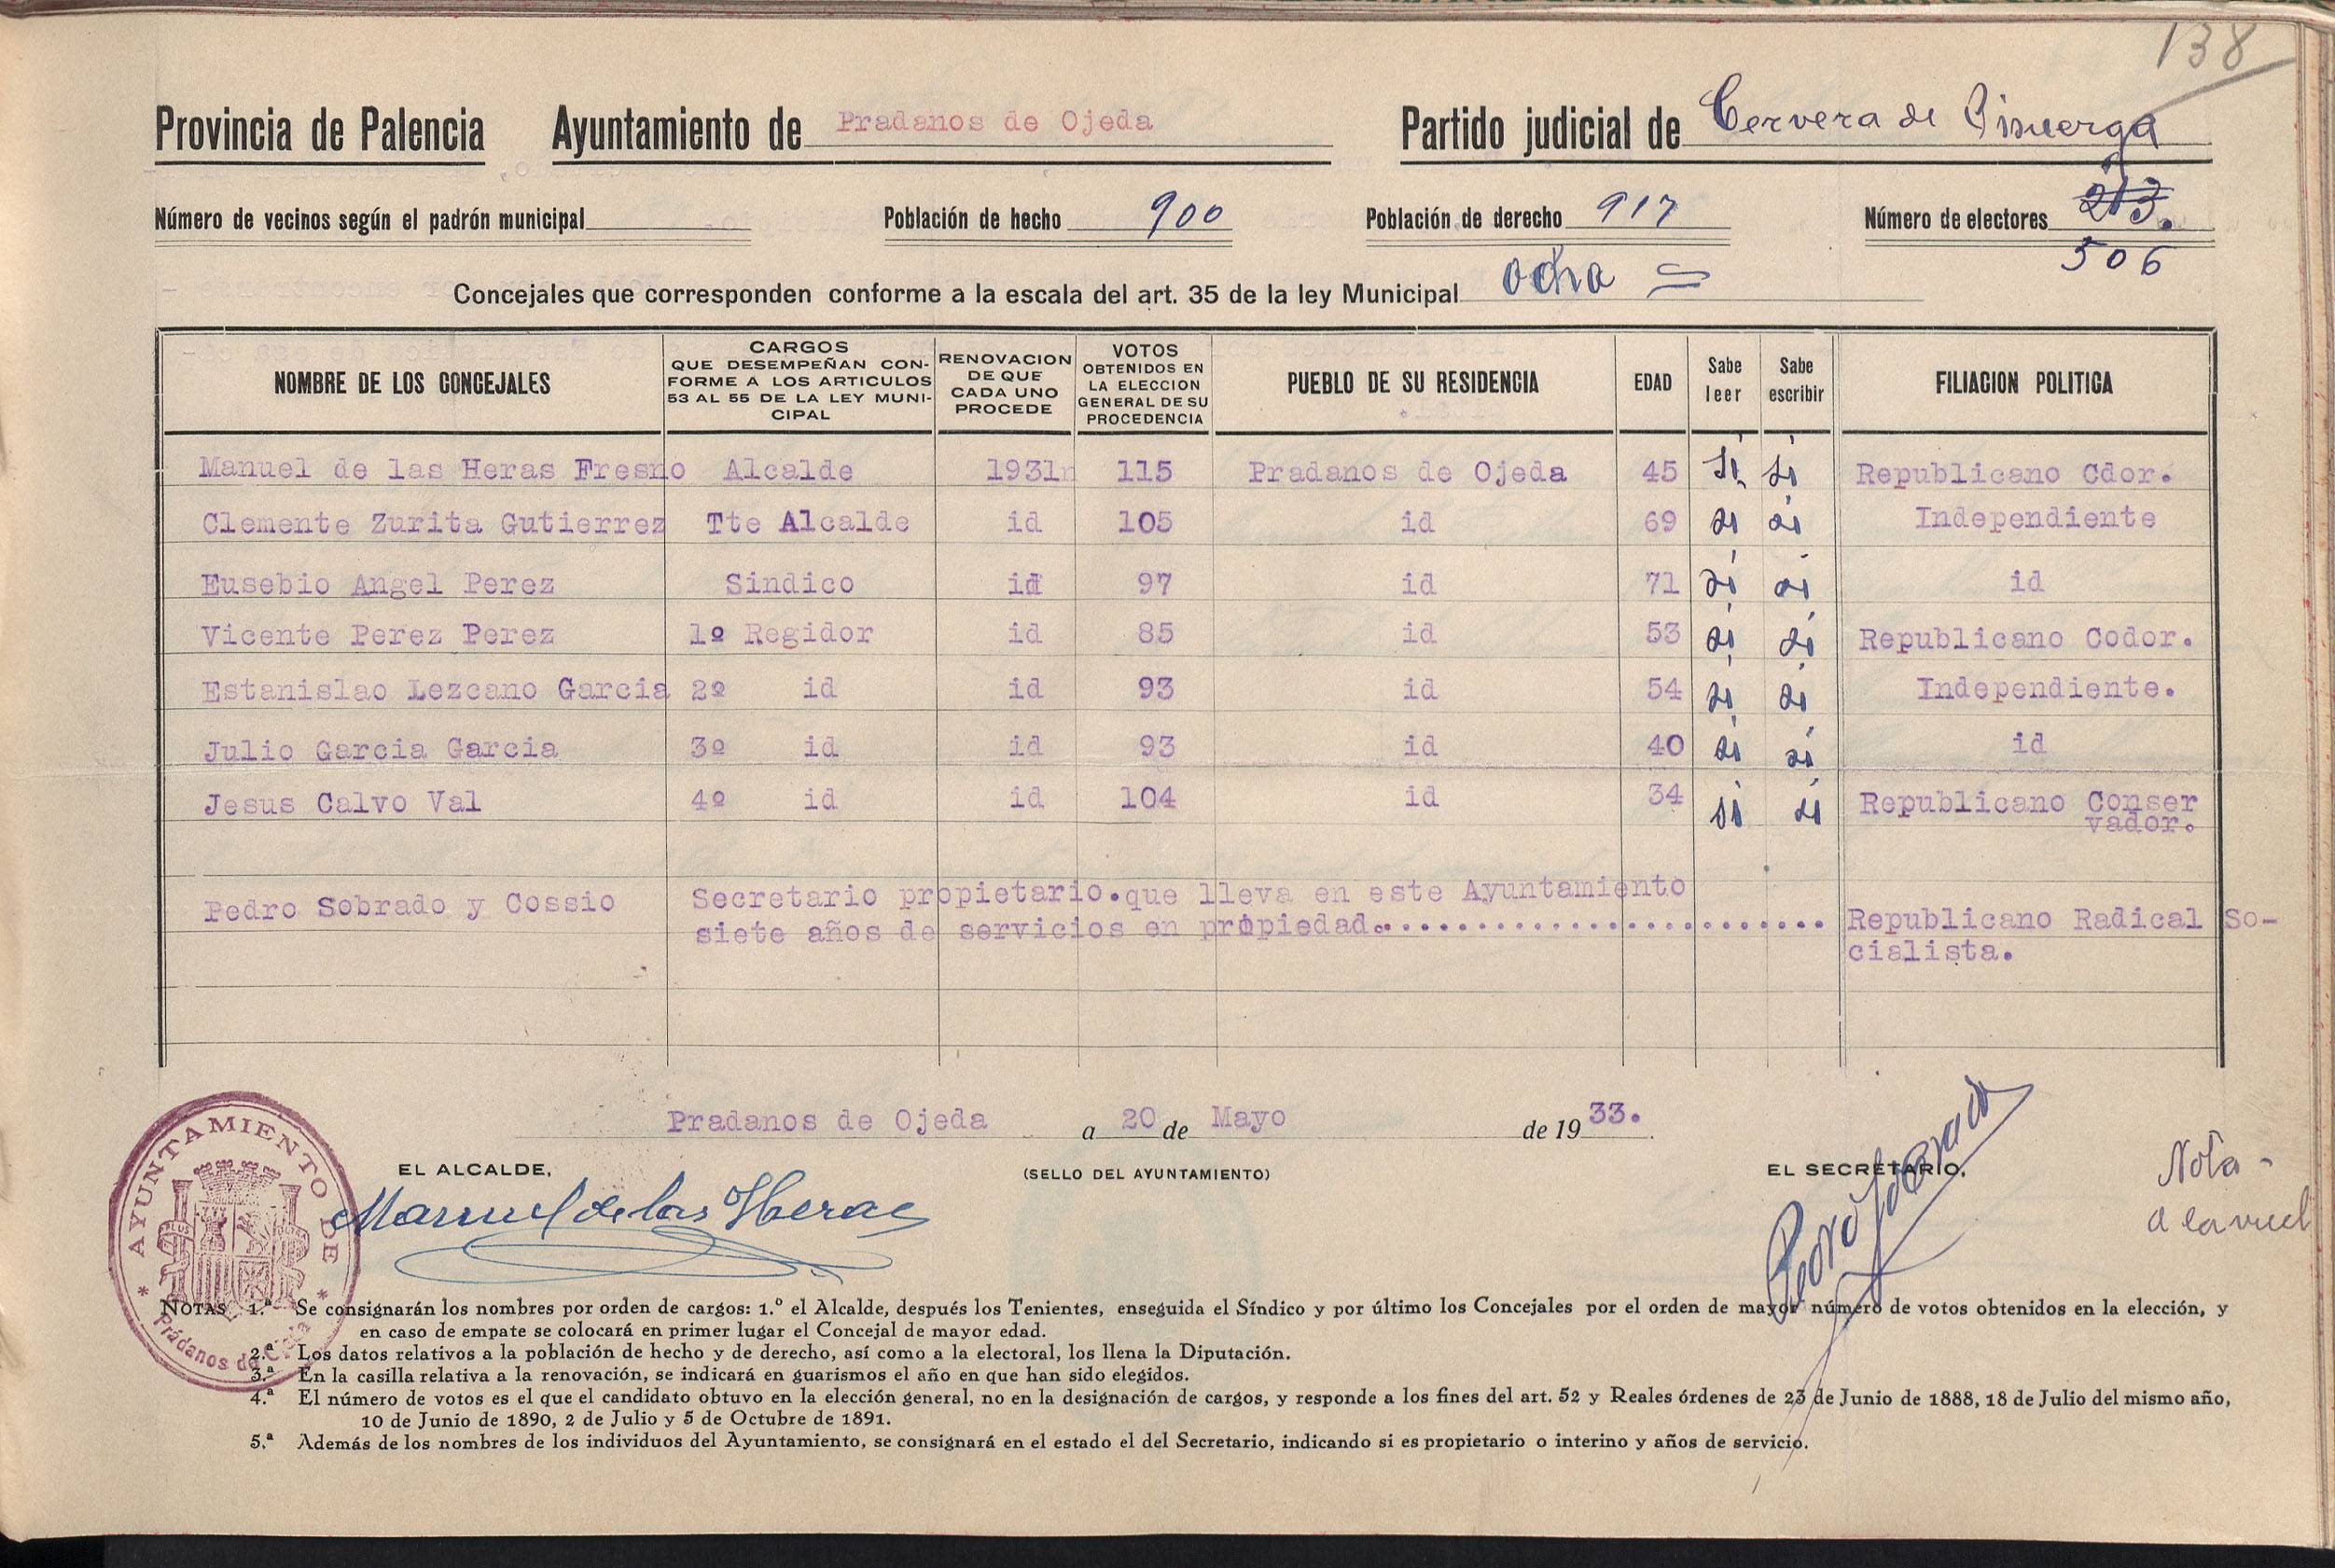 138
Provincia de Palencia Ayuntamiento de Pradanos de Ojeda Partido judicial de Cervera de Pisuerga
Número de vecinos según el padrón municipal Población de hecho 900 Población de derecho 917 Número de electores 213.
506
Concejales que corresponden conforme a la escala del art. 35 de la ley Municipal ocho =
NOMBRE DE LOS CONCEJALES CARGOS QUE DESEMPEÑAN CONFORME A LOS ARTICULOS 53 AL 55 DE LA LEY MUNICIPAL RENOVACION DE QUE CADA UNO PROCEDE VOTOS OBTENIDOS EN LA ELECCION GENERAL DE SU PROCEDENCIA PUEBLO DE SU RESIDENCIA EDAD Sabe leer Sabe escribir FILIACION POLITICA
Manuel de las Heras Fresno Alcalde 1931n 115 Pradanos de Ojeda 45 si si Republicano Cdor.
Clemente Zurita Gutierrez Tte Alcalde id 105 id 69 si si Independiente
Eusebio Angel Perez Sindico id 97 id 71 si si id
Vicente Perez Perez 1º Regidor id 85 id 53 si si Republicano Codor.
Estanislao Lezcano Garcia 2º id id 93 id 54 si si Independiente.
Julio Garcia Garcia 3º id id 93 id 40 si si id
Jesus Calvo Val 4º id id 104 id 34 si si Republicano Conser
vador.
Pedro Sobrado y Cossio Secretario propietario.que lleva en este Ayuntamiento
siete años de servicios en propiedad......................... Republicano Radical So-
cialista.
Pradanos de Ojeda a 20 de Mayo de 1933.
EL ALCALDE, (SELLO DEL AYUNTAMIENTO) EL SECRETARIO,
Manuel de las Heras
Pedro Sobrado
Nota -
a la vuel
AYUNTAMIENTO DE
Prádanos de Ojeda
PLUS
NOTAS 1.ª Se consignarán los nombres por orden de cargos: 1.º el Alcalde, después los Tenientes, enseguida el Síndico y por último los Concejales por el orden de mayor número de votos obtenidos en la elección, y
en caso de empate se colocará en primer lugar el Concejal de mayor edad.
2.ª Los datos relativos a la población de hecho y de derecho, así como a la electoral, los llena la Diputación.
3.ª En la casilla relativa a la renovación, se indicará en guarismos el año en que han sido elegidos.
4.ª El número de votos es el que el candidato obtuvo en la elección general, no en la designación de cargos, y responde a los fines del art. 52 y Reales órdenes de 23 de Junio de 1888, 18 de Julio del mismo año,
10 de Junio de 1890, 2 de Julio y 5 de Octubre de 1891.
5.ª Además de los nombres de los individuos del Ayuntamiento, se consignará en el estado el del Secretario, indicando si es propietario o interino y años de servicio.